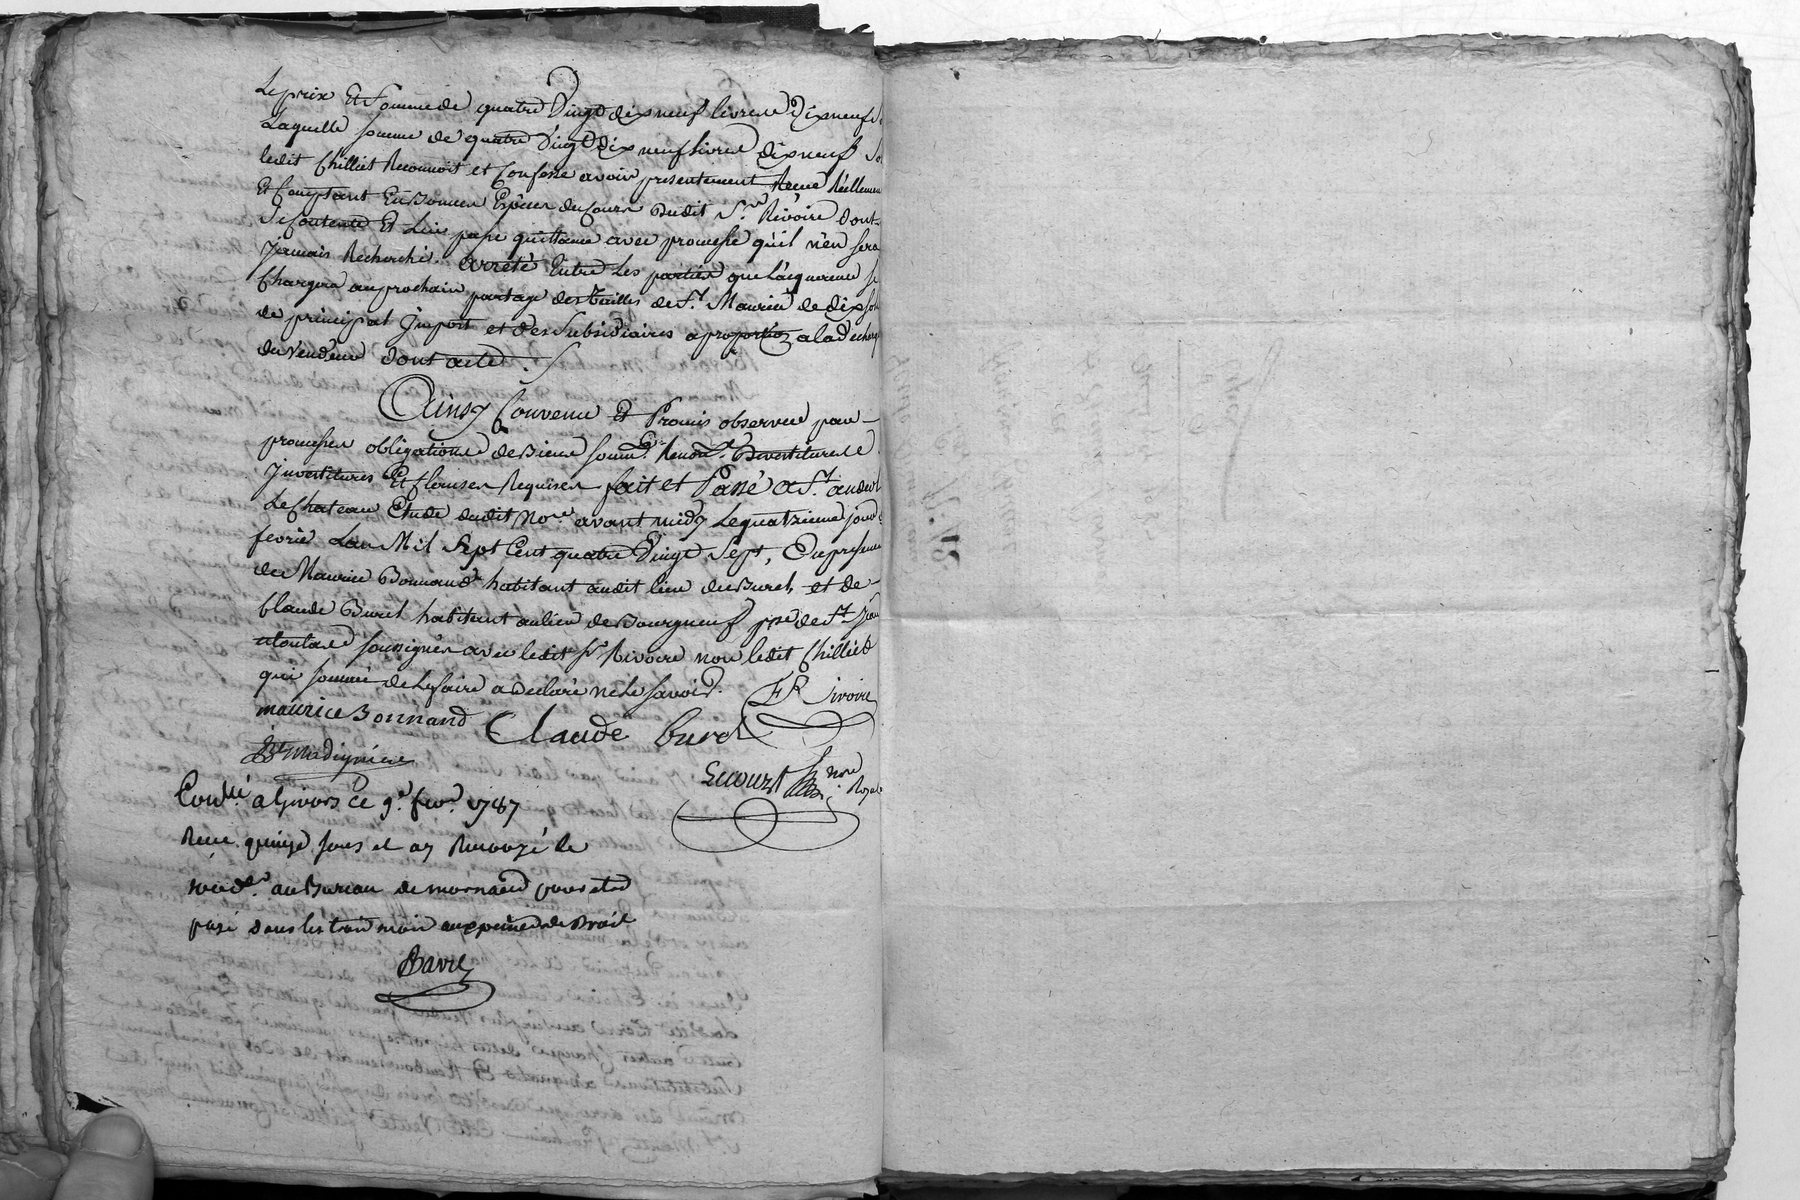 Le prix Et Somme de quatre Vingt dix neuf livres Dix neuf
Laquelle somme de quatre Vingt Dix neuf livres dix neuf So
ledit Chilliet Reconnoit et Confesse avoir presentement Receue Réellemen
Et Comptant En Bonnes Espèces du Cours Dudit Sr. Rivoire dont
Se Contente Et Lui passe quittance avec promesse qu'il n'en sera
Jamais Recherché. Arreté Entre Les parties que L'acquereur se
Chargera au prochain partage des Tailles de St. Maurice de dix sols
de principal Import et des Subsidiaires a proportion a la decharge
du Vendeur dont acte.
Ainsy Convenu Et Promis observer par
promesses obligations de Biens soum. Renon. Devestitures
Investitures Et Clauses Requises fait et Passé a St. andeol
Le Chateau Etude dudit Nore. avant midy Le quatrieme jour
fevrier Lan Mil Sept Cent quatre Vingt Sept, En presence
de Maurice Bonnand habitant audit lieu du Buret et de
Claude Buret habitant au lieu de Bourgneuf psse de St. Jean
soussignés avec ledit Sr. Rivoire non ledit Chilliet
qui sommé de Le faire a Declaré ne Le Savoir.
maurice Bonnand Claude burel FR rivoire
Lecourt nore Royal
Conllé a Givors Ce 9e. fevr. 1787
Receu quinze sous et ay Renvoyé le
au Bureau de mornand pour etre
payé dans les trois mois aux peines de Droit
Bavre